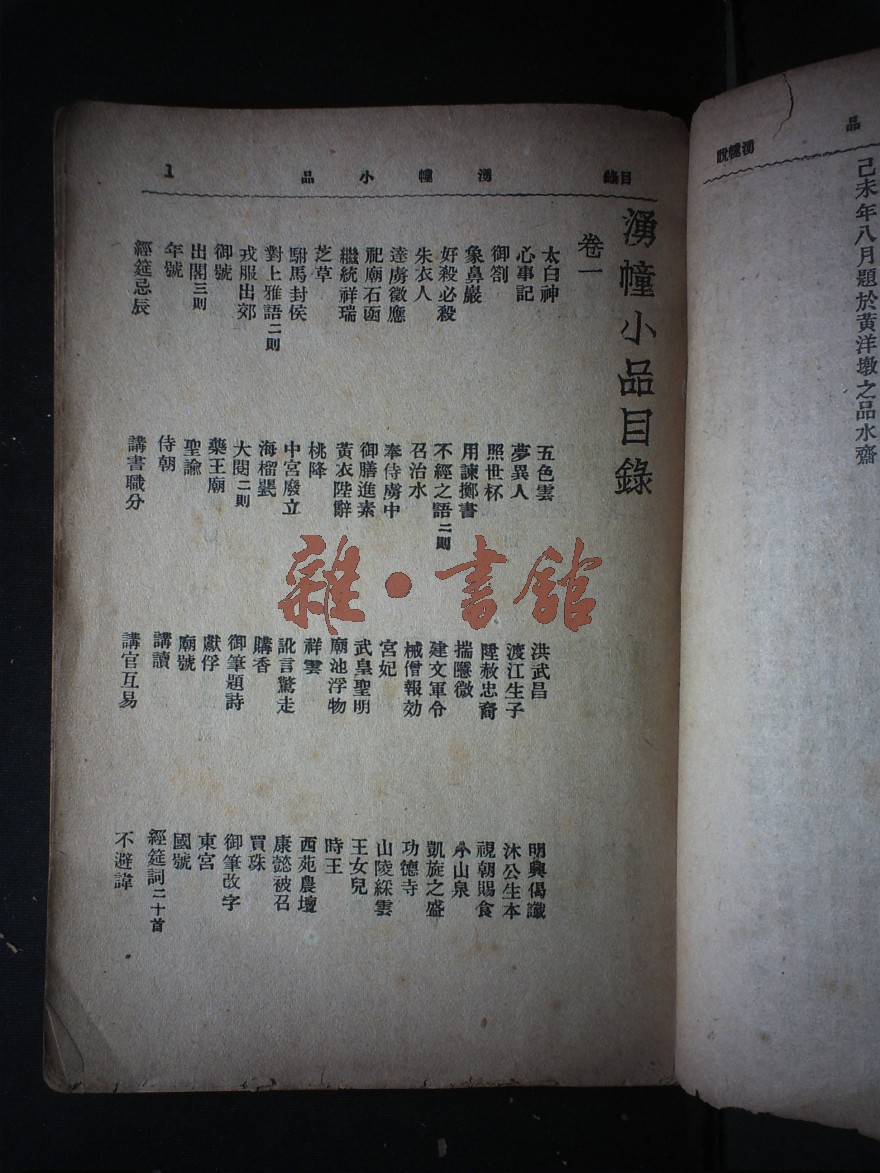 品　湧幢說
己未年八月題於黃洋墩之品水齋
目錄　湧幢小品　1
湧幢小品目錄
卷一
太白神　五色雲　洪武昌　明興偈讖
心事記　夢異人　渡江生子　沐公生本
御劄　照世杯　陞赦忠裔　視朝賜食
象鼻巖　用諫擲書　揣隱微　小山泉
好殺必殺　不經之語二則　建文軍令　凱旋之盛
朱衣人　召治水　械僧報効　功德寺
達虜徵應　奉侍虜中　宮妃　山陵綵雲
祀廟石函　御膳進素　武皇聖明　王女兒
繼統祥瑞　黃衣陛辭　廟池浮物　時王
芝草　桃降　祥雲　西苑農壇
駙馬封侯　中宮廢立　訛言驚走　康懿被召
對上雅語二則　海榴甖　購香　買珠
戎服出郊　大閱二則　御筆題詩　御筆改字
御號　藥王廟　獻俘　東宮
出閣三則　聖諭　廟號　國號
年號　侍朝　講讀　經筵詞二十首
經筵忌辰　講書職分　講官互易　不避諱
雜·書館